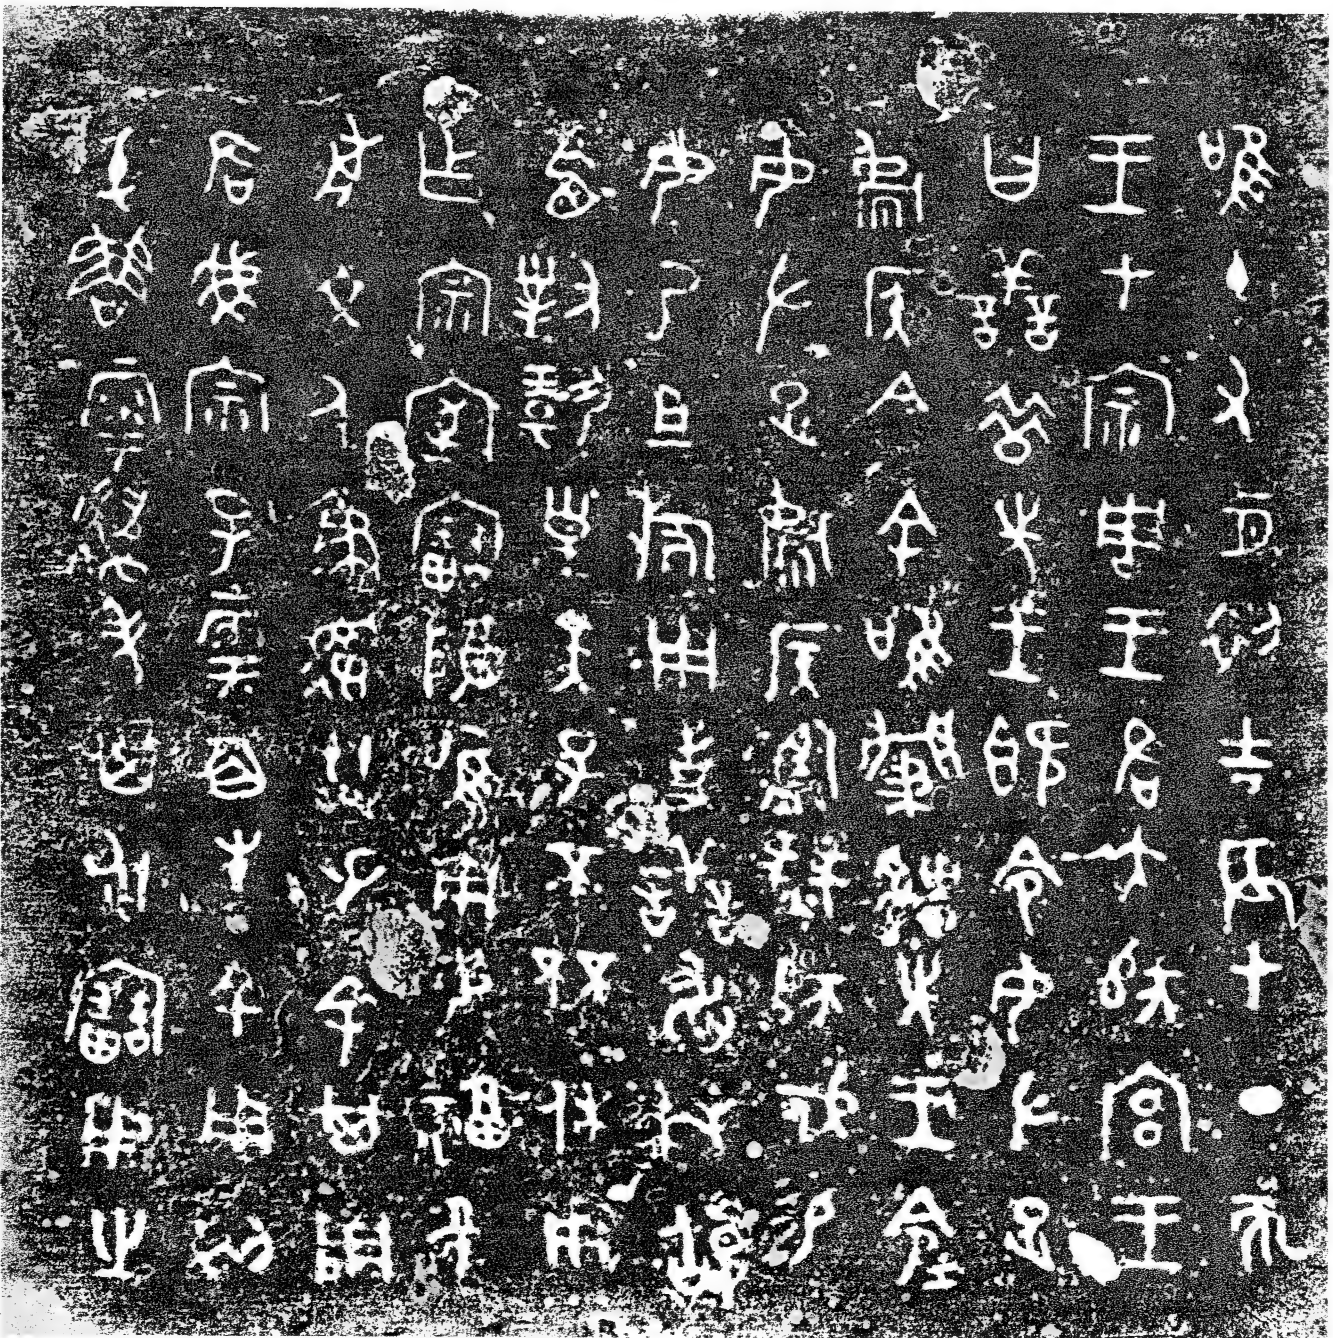 唯十又二月初吉辰才丁亥
王才宗周王各大師宮王
曰善昔先王既令女左疋
𩵦侯今余唯肇𤕌先王令令
女左疋𩵦侯監豳師戍易
女乃且旂用事善敢拜𩒨
首對揚皇天子不㔻休用
乍宗室寶尊唯用妥福唬
前文人秉德共屯余其用
各我宗子雩百生余用匄
屯魯雩萬年其永寶用之